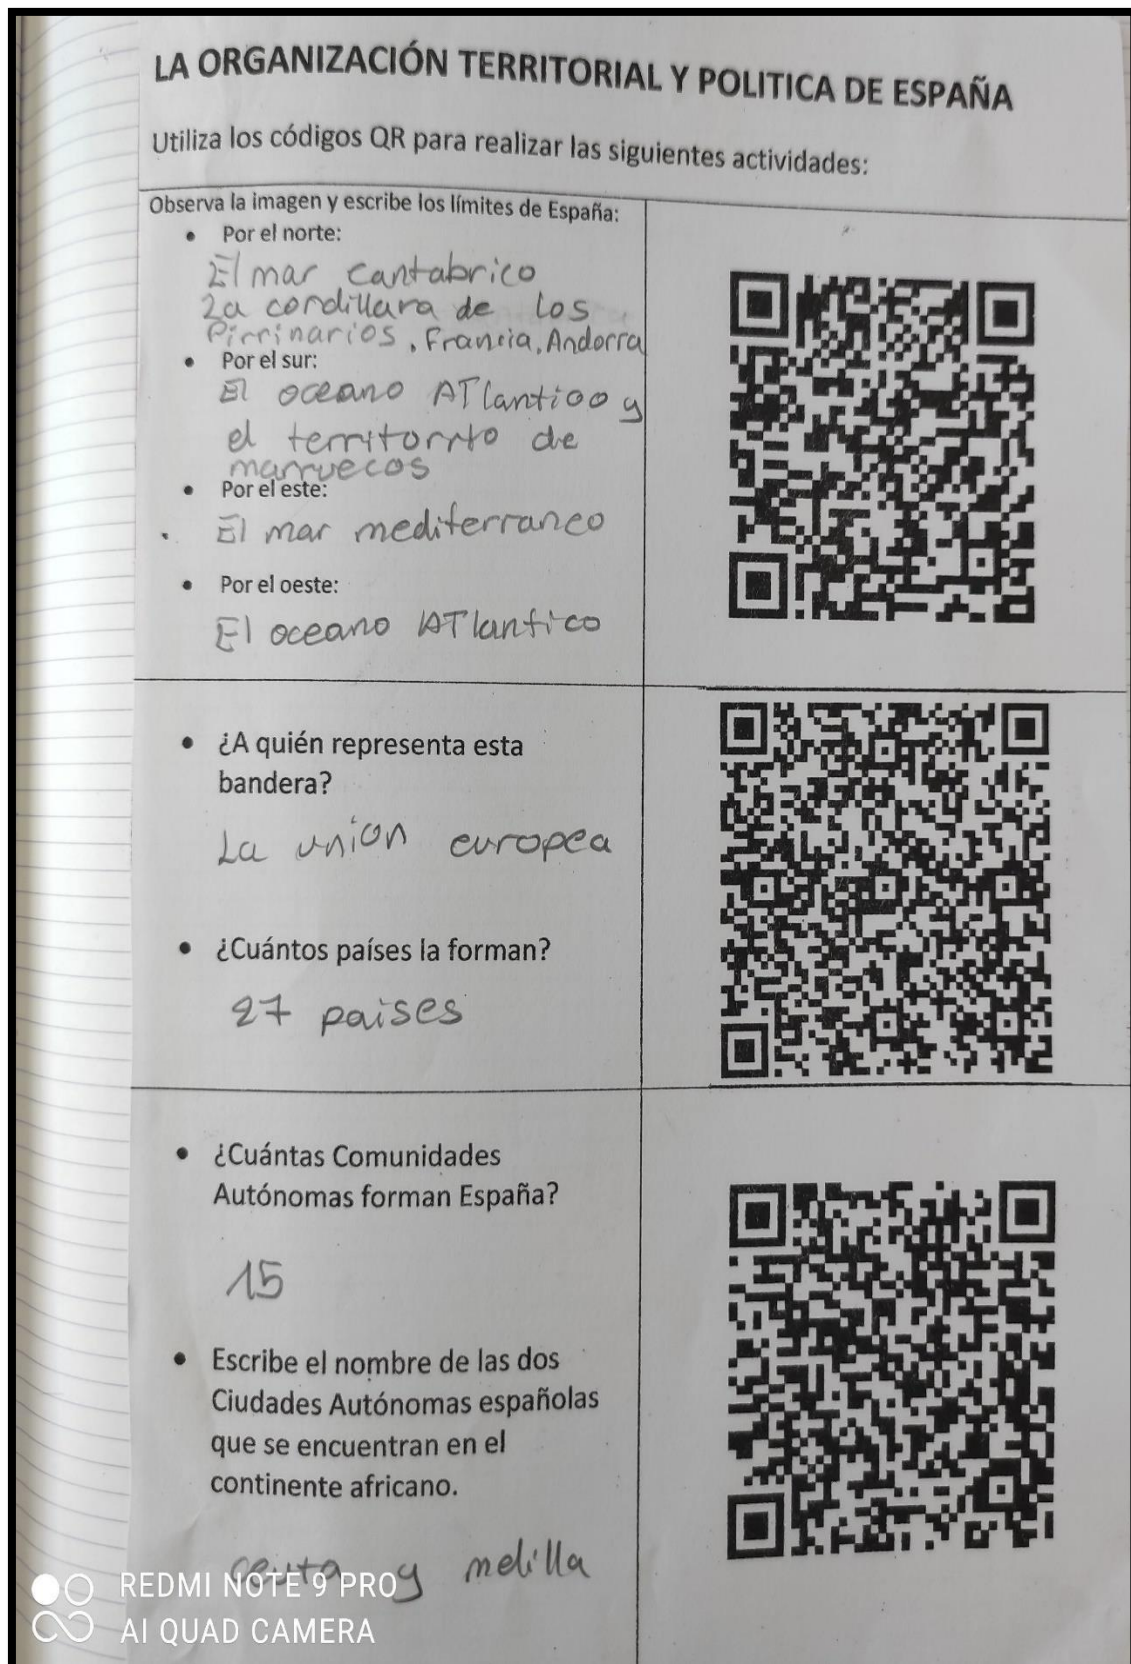 LA ORGANIZACIÓN TERRITORIAL Y POLITICA DE ESPAÑA
Utiliza los códigos QR para realizar las siguientes actividades:
Observa la imagen y escribe los límites de España:
• Por el norte:
El mar cantabrico
La cordillara de los
Pirrinarios, Francia, Andorra
• Por el sur:
El oceano ATlantico y
el territorrio de
marruecos
• Por el este:
El mar mediterraneo
• Por el oeste:
El oceano ATlantico
• ¿A quién representa esta
bandera?
La union europea
• ¿Cuántos países la forman?
27 paises
• ¿Cuántas Comunidades
Autónomas forman España?
15
• Escribe el nombre de las dos
Ciudades Autónomas españolas
que se encuentran en el
continente africano.
ceuta y melilla
REDMI NOTE 9 PRO
AI QUAD CAMERA